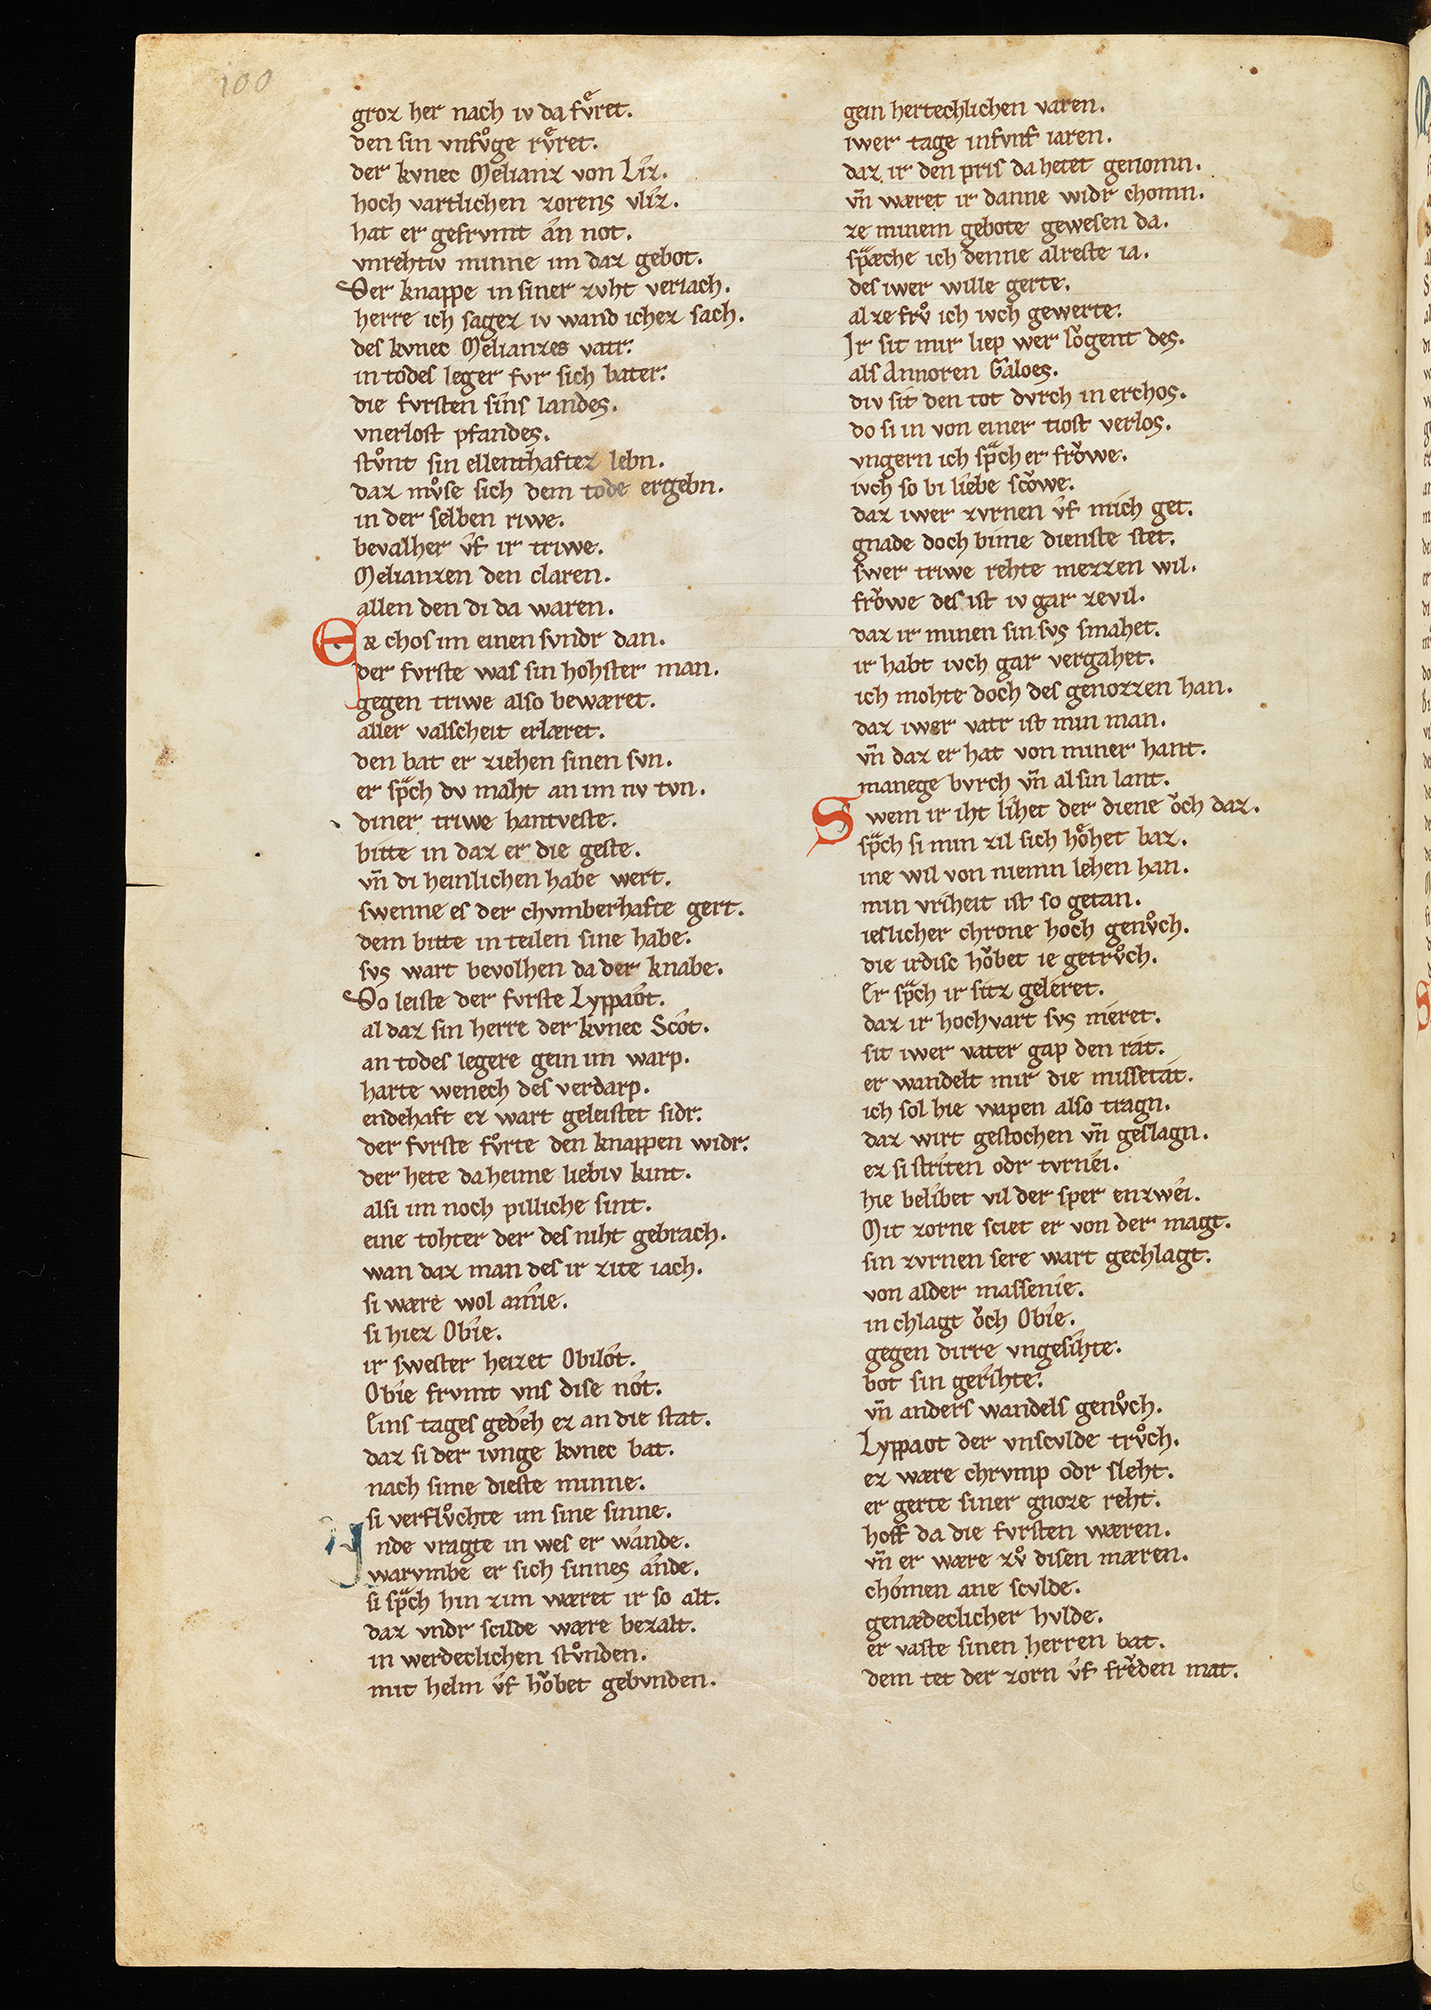 100
groz her nach iv da fvͤret.
den sin vnfvͦge rvͤret.
der kvnec Melianz von Liz.
hoch vartlichen zorens vliz.
hat er gefrvmt an not.
vnrehtiv minne im daz gebot.
Der knappe in siner zvht veriach.
herre ich sagez iv wand ichez sach.
des kvnec Melianzes vatr.
in todes leger fvr sich bater.
die fvrsten sins landes.
vnerlost pfandes.
stvͦnt sin ellenthaftez lebn.
daz mvͦse sich dem tode ergebn.
in der selben riwe.
bevalher vf ir triwe.
Melianzen den claren.
allen den di da waren.
Eæ chos im einen svndr dan.
der fvrste was sin hohster man.
gegen triwe also bewæret.
aller valscheit erlæret.
den bat er ziehen sinen svn.
er spͣch dv maht an im nv tvn.
diner triwe hantveste.
bitte in daz er die geste.
vn̄ di heinlichen habe wert.
swenne es der chvmberhafte gert.
dem bitte in teilen sine habe.
svs wart bevolhen da der knabe.
Do leiste der fvrste Lyppaot.
al daz sin herre der kvnec Scot.
an todes legere gein im warp.
harte wenech des verdarp.
endehaft ez wart geleistet sidr.
der fvrste fvͦrte den knappen widr.
der hete da heime liebiv kint.
alsi im noch pilliche sint.
eine tohter der des niht gebrach.
wan daz man des ir zite iach.
si wære wol amie.
si hiez Obie.
ir swester heizet Obilot.
Obie frvmt vns dise not.
Eins tages gedeh ez an die stat.
daz si der ivnge kvnec bat.
nach sime dieste minne.
si verflvͦchte im sine sinne.
vnde vragte in wes er wande.
warvmbe er sich sinnes ande.
si spͣch hin zim wæret ir so alt.
daz vndr scilde wære bezalt.
in werdeclichen stvͦnden.
mit helm vf hoͮbet gebvnden.
gein hertechlichen varen.
iwer tage infvnf iaren.
daz ir den pris da hetet genomn.
vn̄ wæret ir danne widr chomn.
ze minem gebote gewesen da.
spͣæche ich denne alreste ia.
des iwer wille gerte.
al ze frvͦ ich ivch gewerte.
Ir sit mir liep wer loͮgent des.
als Annoren Galoes.
div sit den tot dvrch in erchos.
do si in von einer tiost verlos.
vngern ich spͣch er froͮwe.
ivch so bi liebe scoͮwe.
daz iwer zvrnen vf mich get.
gnade doch bime dienste stet.
swer triwe rehte mezzen wil.
froͮwe des ist iv gar zevil.
daz ir minen sin svs smahet.
ir habt ivch gar vergahet.
ich mohte doch des genozzen han.
daz iwer vatr ist min man.
vn̄ daz er hat von miner hant.
manege bvrch vn̄ al sin lant.
Swem ir iht lihet der diene oͮch daz.
spͣch si min zil sich hoͤhet baz.
ine wil von niemn lehen han.
min vriheit ist so getan.
ieslicher chrone hoch genvͦch.
die irdisc hoͮbet ie getrvͦch.
Er spͣch ir sitz geleret.
daz ir hochvart svs meret.
sit iwer vater gap den rat.
er wandelt mir die missetat.
ich sol hie wapen also tragn.
daz wirt gestochen vn̄ geslagn.
ez si striten odr tvrnei.
hie belibet vil der sper enzwei.
Mit zorne sciet er von der magt.
sin zvrnen sere wart gechlagt.
von alder massenie.
in chlagt oͮch Obie.
gegen dirre vngesihte.
bot sin gerihte.
vn̄ anders wandels genvͦch.
Lyppaot der vnscvlde trvͦch.
ez wære chrvmp odr sleht.
er gerte siner gnoze reht.
hoff da die fvrsten wæren.
vn̄ er wære zvͦ disen mæren.
chomen ane scvlde.
genædeclicher hvlde.
er vaste sinen herren bat.
dem tet der zorn vf freͮden mat.